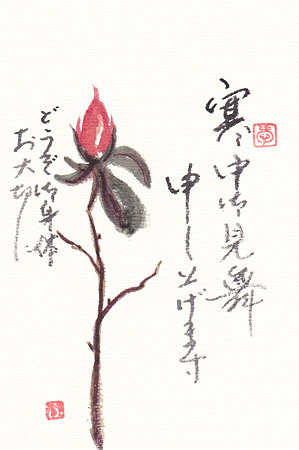 寒中御見舞
申し上げます
どうぞ御身体
お大切に